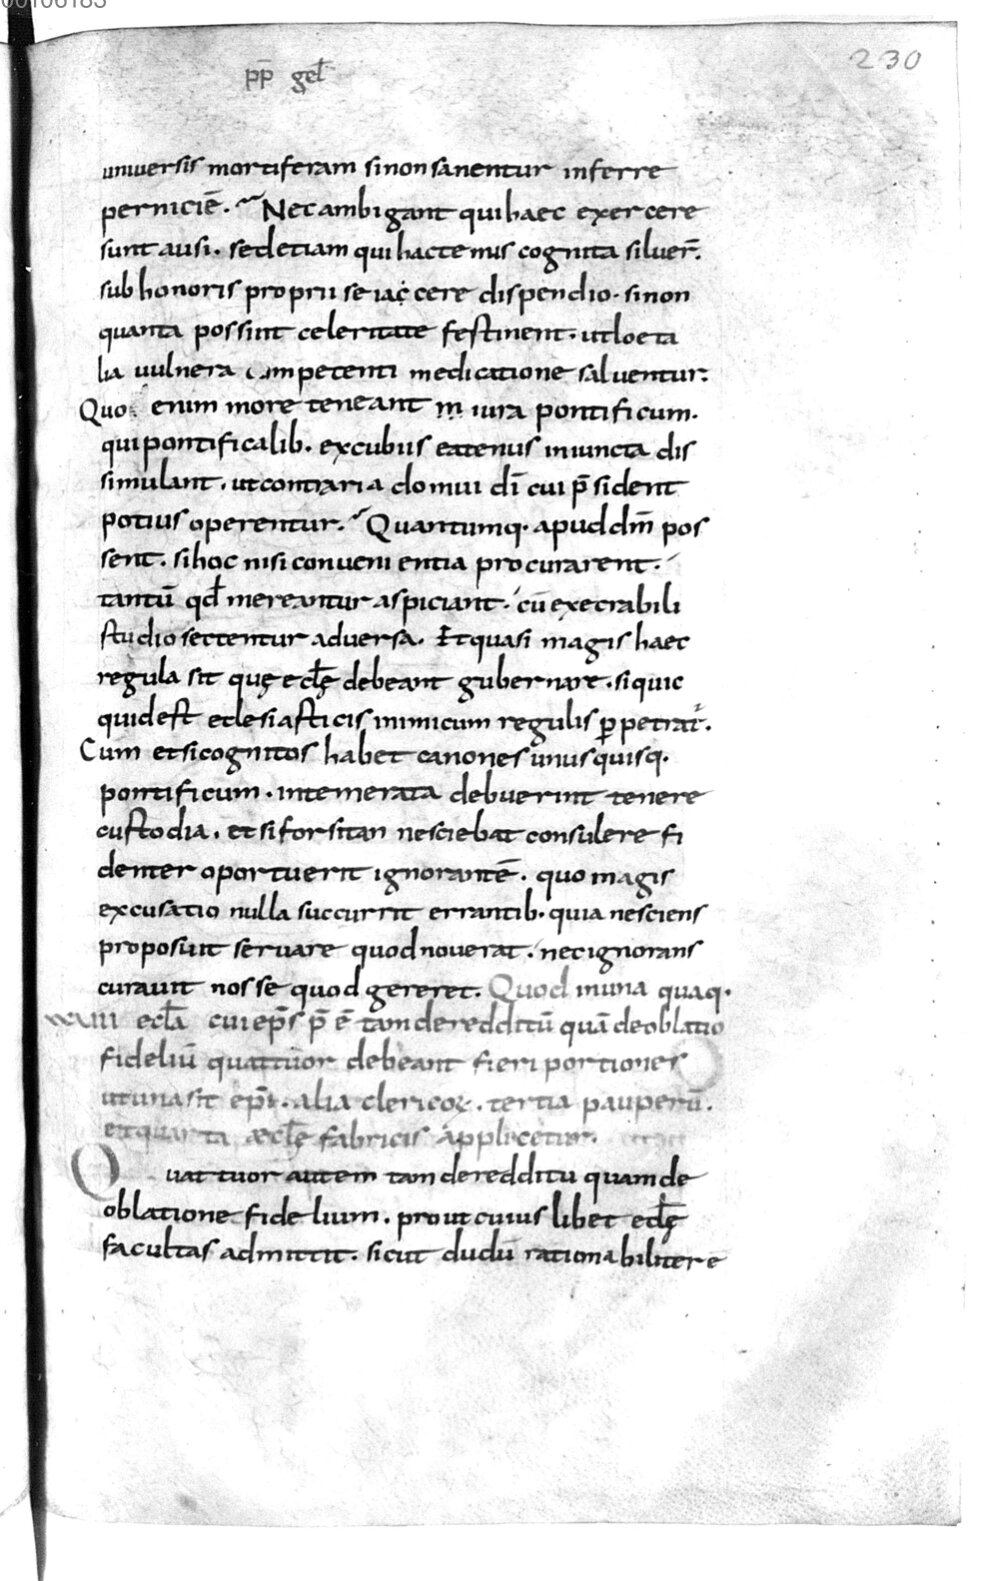 00106183
pp̄ gel̄
230
universis mortiferam sinon sanentur inferre
perniciē. Nec ambigant qui haec exercere
sunt ausi. sed etiam qui hactenus cognita siluer̄.
sub honoris proprii se iacere dispendio. sinon
quanta possint celeritate festinent. ut loeta
lia vulnera competenti medicatione salventur.
Quo enim more teneant iura pontificum.
qui pontificalib. excubiis eatenus iniuncta dis
simulant. ut contraria domui dī cui p̄sident
potius operentur. Quantumq. apud dm̄ pos
sent. si hoc nisi convenientia procurarent.
tantū qd̄ mereantur aspiciant. cū execrabili
studio sectentur adversa. Et quasi magis haec
regula sit quę eclę̄ debeant gubernare. si quic
quid est eclesiasticis inimicum regulis ꝑpetrat᷑.
Cum et si cognitos habet canones unus quisq.
pontificum. intemerata debuerint tenere
custodia. et si forsitan nesciebat consulere fi
denter oportuerit ignorantē. quo magis
excusatio nulla succurrit errantib. quia nesciens
proposuit servare quod noverat. nec ignorans
curavit nosse quod gereret. Quod in una quaq.
xxviii ecl̄a cui ep̄s p̄ ē tam de redditū quā de oblatio
fideliū quattuor debeant fieri portiones
ut una sit ep̄i. alia clericoꝝ. tertia pauperū.
et quarta æclę̄ fabricis applicetur.
Quattuor autem tam de redditu quam de
oblatione fidelium. prout cuius libet eclę̄
facultas admittit. sicut dudū rationabiliter e